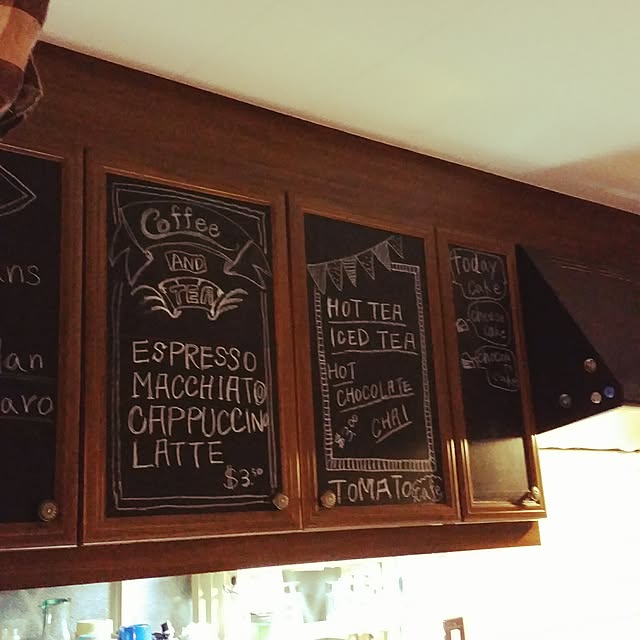 ns
lan
aro
Coffee
AND
TEA
ESPRESSO
MACCHIATO
CAPPUCCINO
LATTE
$3.50
HOT TEA
ICED TEA
HOT
CHOCOLATE
$3.00 CHAI
TOMATO cafe
Today
cake
cheese
cake
cake